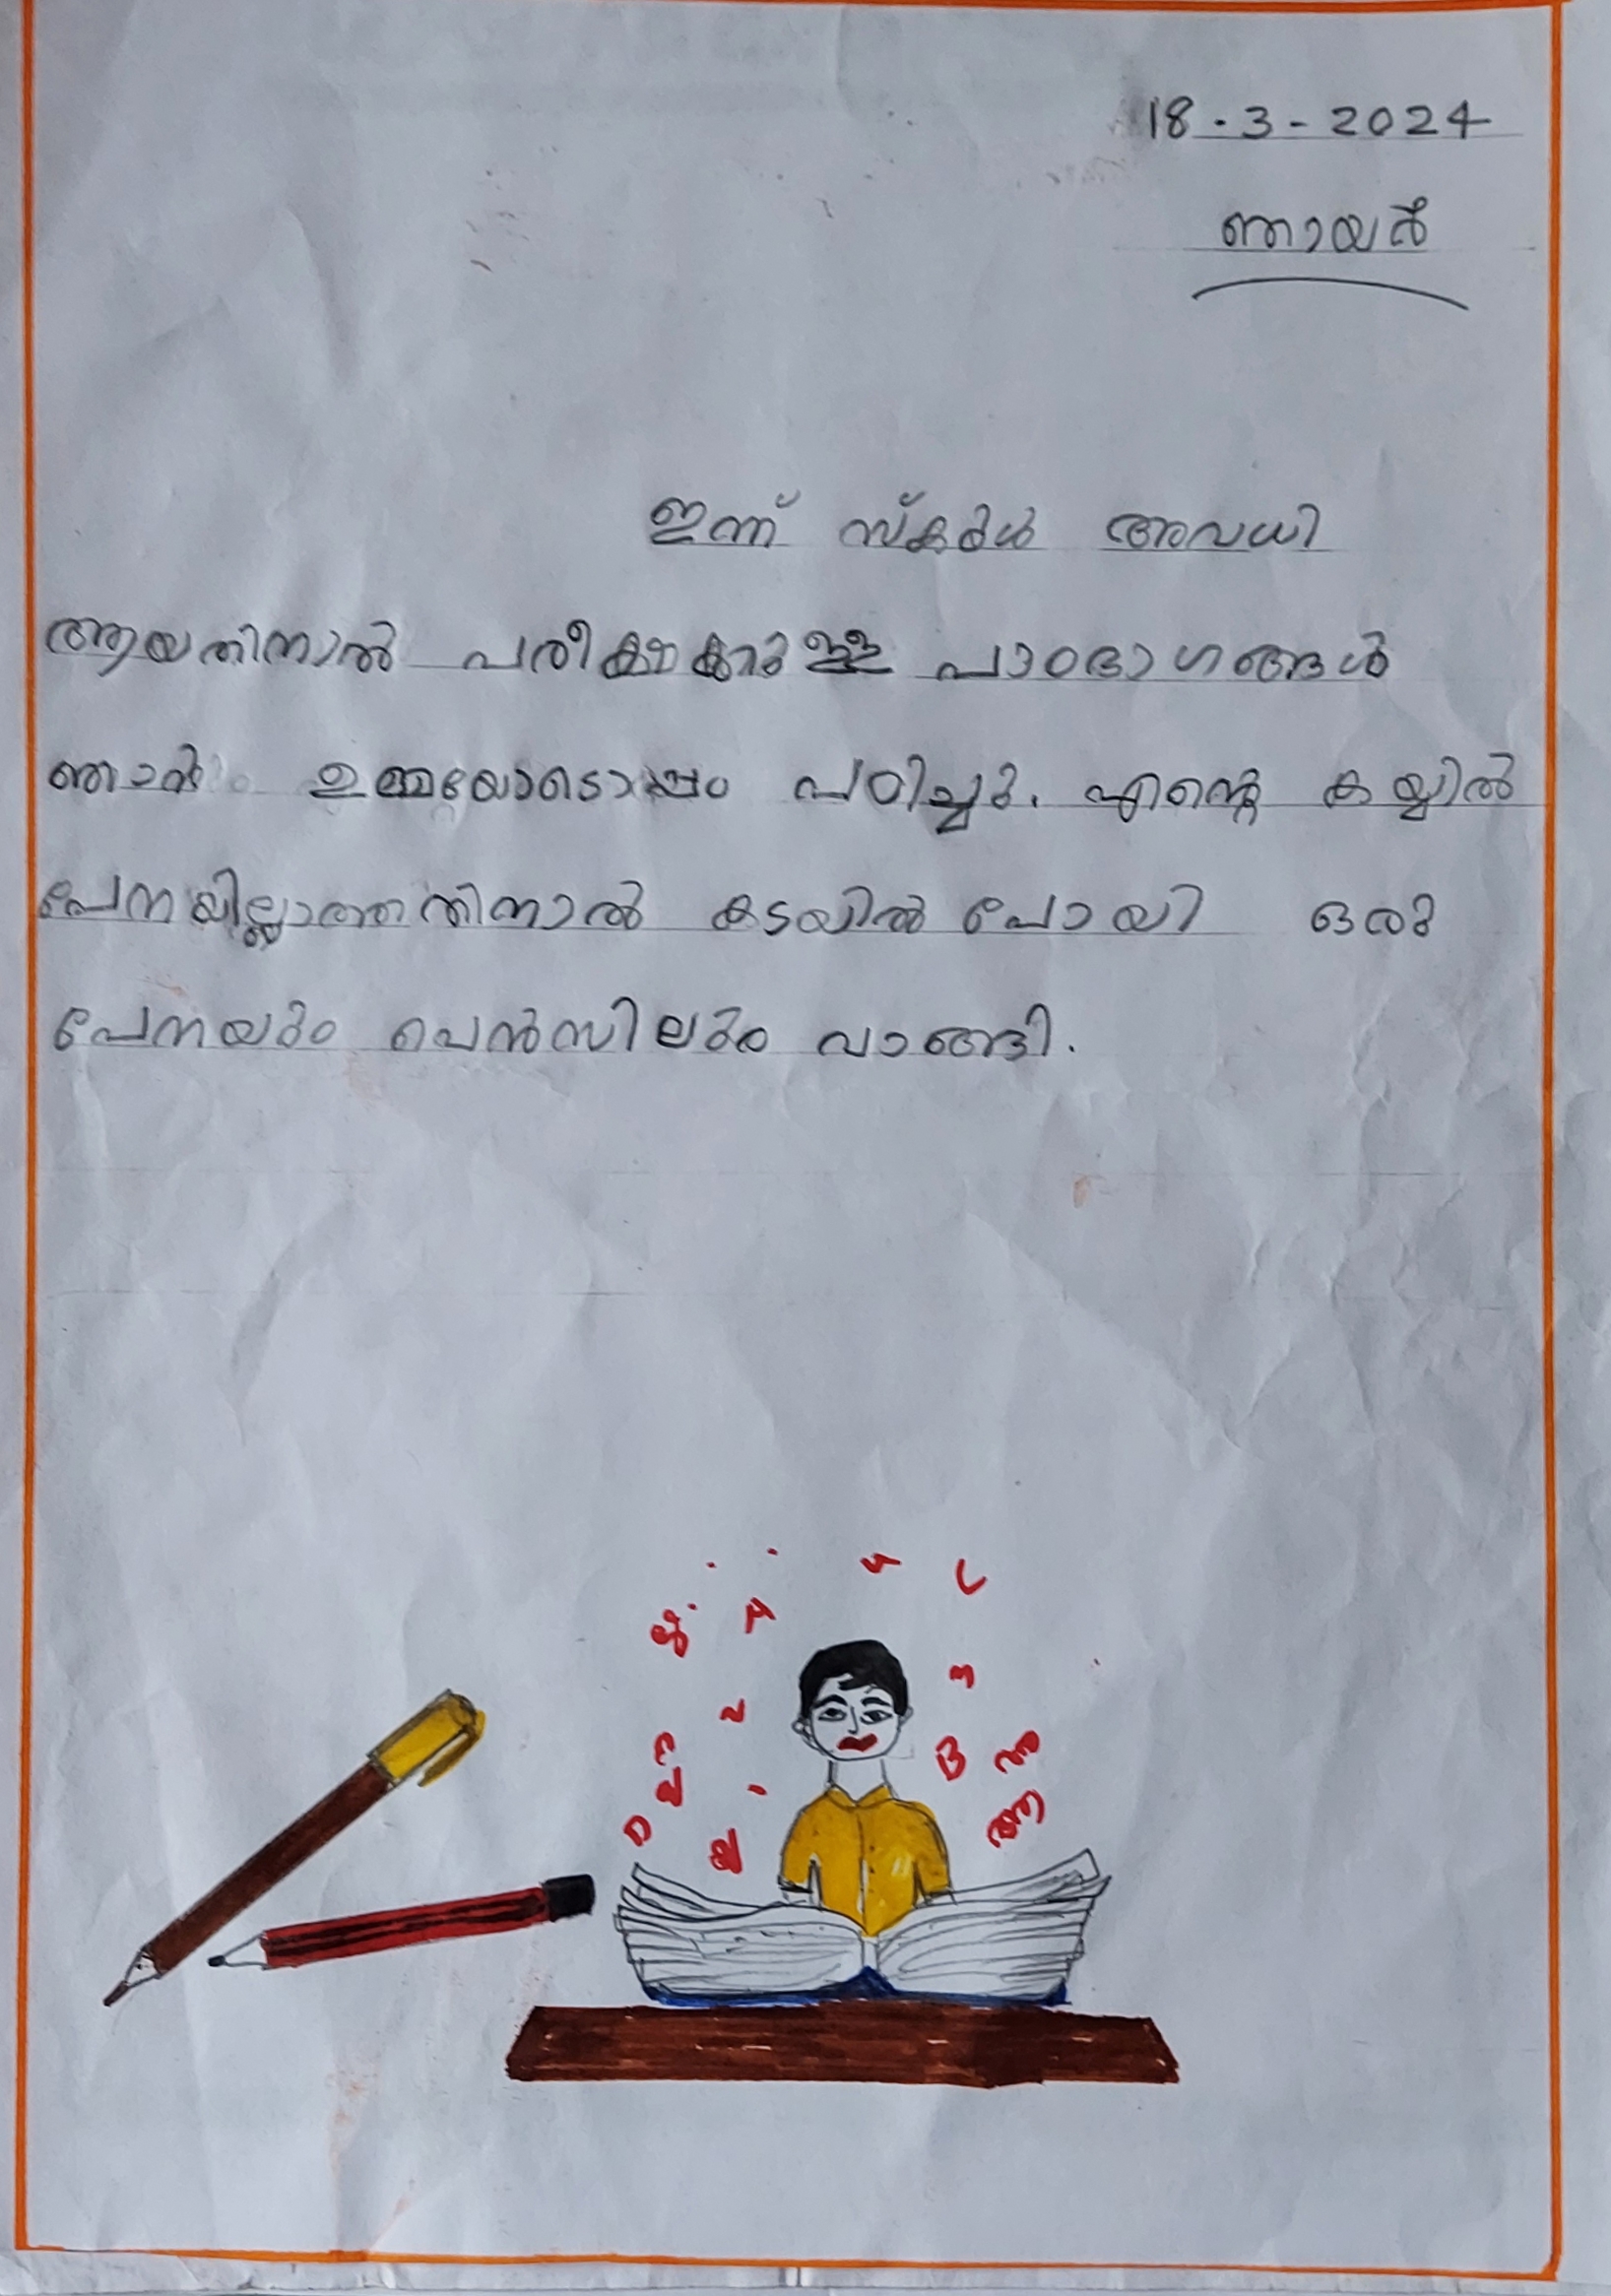 18-3-2024
ഞായർ
ഇന്ന് സ്കൂൾ അവധി
ആയതിനാൽ പരീക്ഷക്കുള്ള പാഠഭാഗങ്ങൾ
ഞാൻ ഉമ്മയോടൊപ്പം പഠിച്ചു. എന്റെ കയ്യിൽ
പേനയില്ലാത്തതിനാൽ കടയിൽ പോയി ഒരു
പേനയും പെൻസിലും വാങ്ങി.
L
A
3
2
B അ
ആ
D